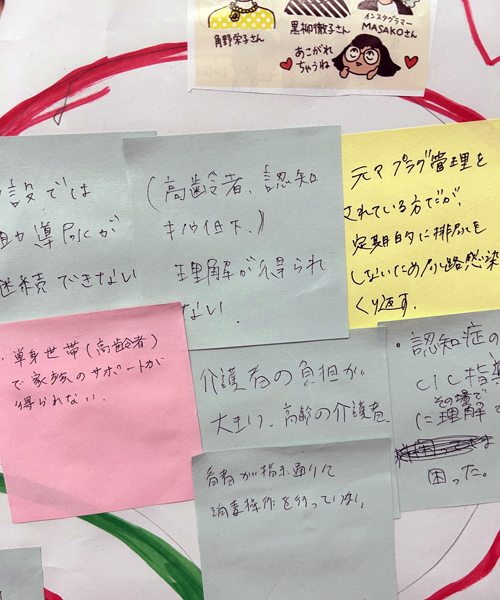 角野栄子さん
黒柳徹子さん
インスタグラマー
MASAKOさん
あこがれ
ちゃうね
設では
助導尿が
継続できない
(高齢者、認知
キ力低下。)
理解が得られ
ない.
元々プラグ管理を
されている方だが、
定期的に排尿を
しないため尿路感染
くり返す.
・単身世帯(高齢者)
で家族のサポートが
得られない.
介護者の負担が
大きい、高齢の介護者
・認知症の
CIC指導
その場で
に理解で
困った。
患者が指示通りに
消毒操作を行っていない